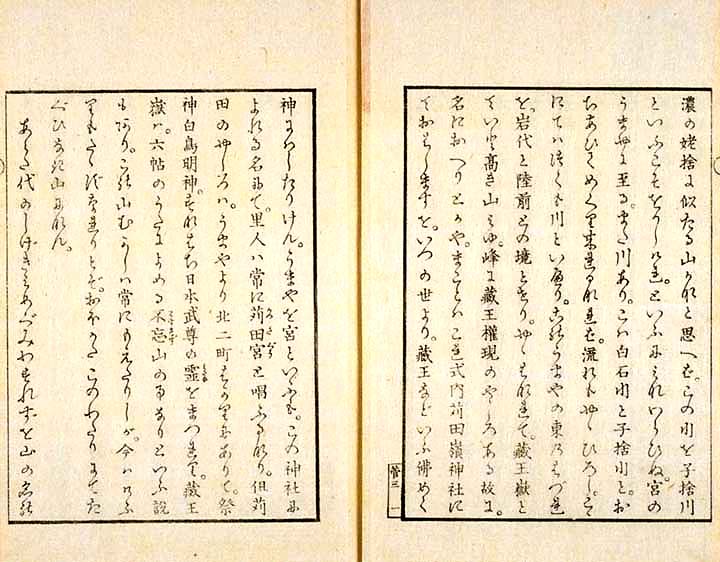 濃の姥捨に似たる山かなと思へば。この川を子捨川
といふこそをかしけれ。といふにみなわらひぬ。宮の
うまやに至る。また川あり。こは白石川と子捨川と。お
ちあひてめくり来れるなれば。流れもやゝひろし。こゝ
にては くも川といへり。このうまやの東のはづれ
を。岩代と陸前との境とせり。やゝはなれて。藏王嶽と
ていと高き山みゆ。峰に藏王權現のやしろある故に。
名におへりとかや。まことはこれ式内苅田嶺神社に
ておはしますを。いつの世より。藏王などいふ佛めく
菅三 一
神にはしたりけん。うまやを宮といふも。この神社に
よれる名にて。里人は常に苅田宮と唱ふるなり。但苅
田のやしろは。うまやより北二町はかりにありて。祭
神白鳥明神。すなはち日本武尊の靈をまつれり。藏王
嶽は。六帖のうたによめる不忘山の事なりといふ説
もあり。この山むかしは常にもえたりしが。今はけふ
りもたゝずなれりとぞ。おほかたこのわたりにてた
ぐひなき山になん。
あらた代のしげきみめぐみわすれずを山の名の